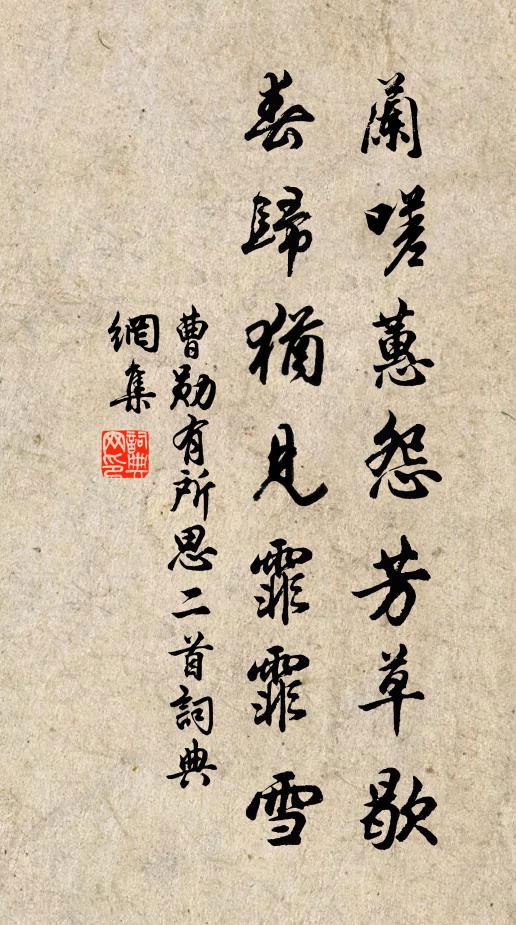 蘭嗟蕙怨芳草歇
春歸猶見霏霏雪
曹勛有所思二首詞典
網集
詞典
网印